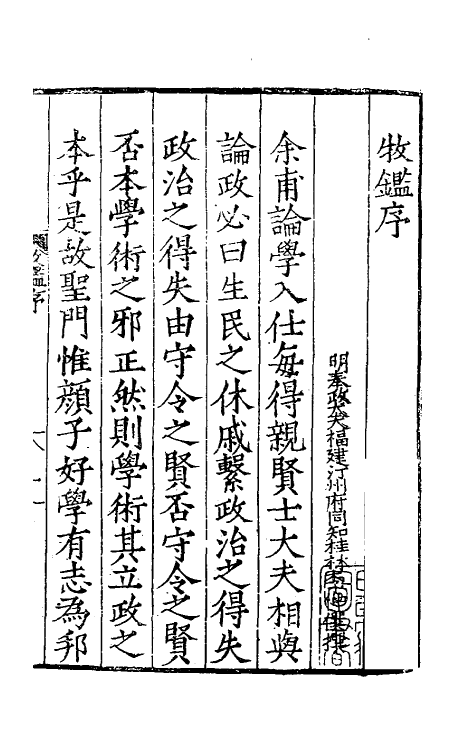 牧鑑序
明奉政大夫福建汀州府同知桂林
余甫論學入仕每得親賢士大夫相與
論政必曰生民之休戚繫政治之得失
政治之得失由守令之賢否守令之賢
否本學術之邪正然則學術其立政之
本乎是故聖門惟顏子好學有志為邦
牧鑑序